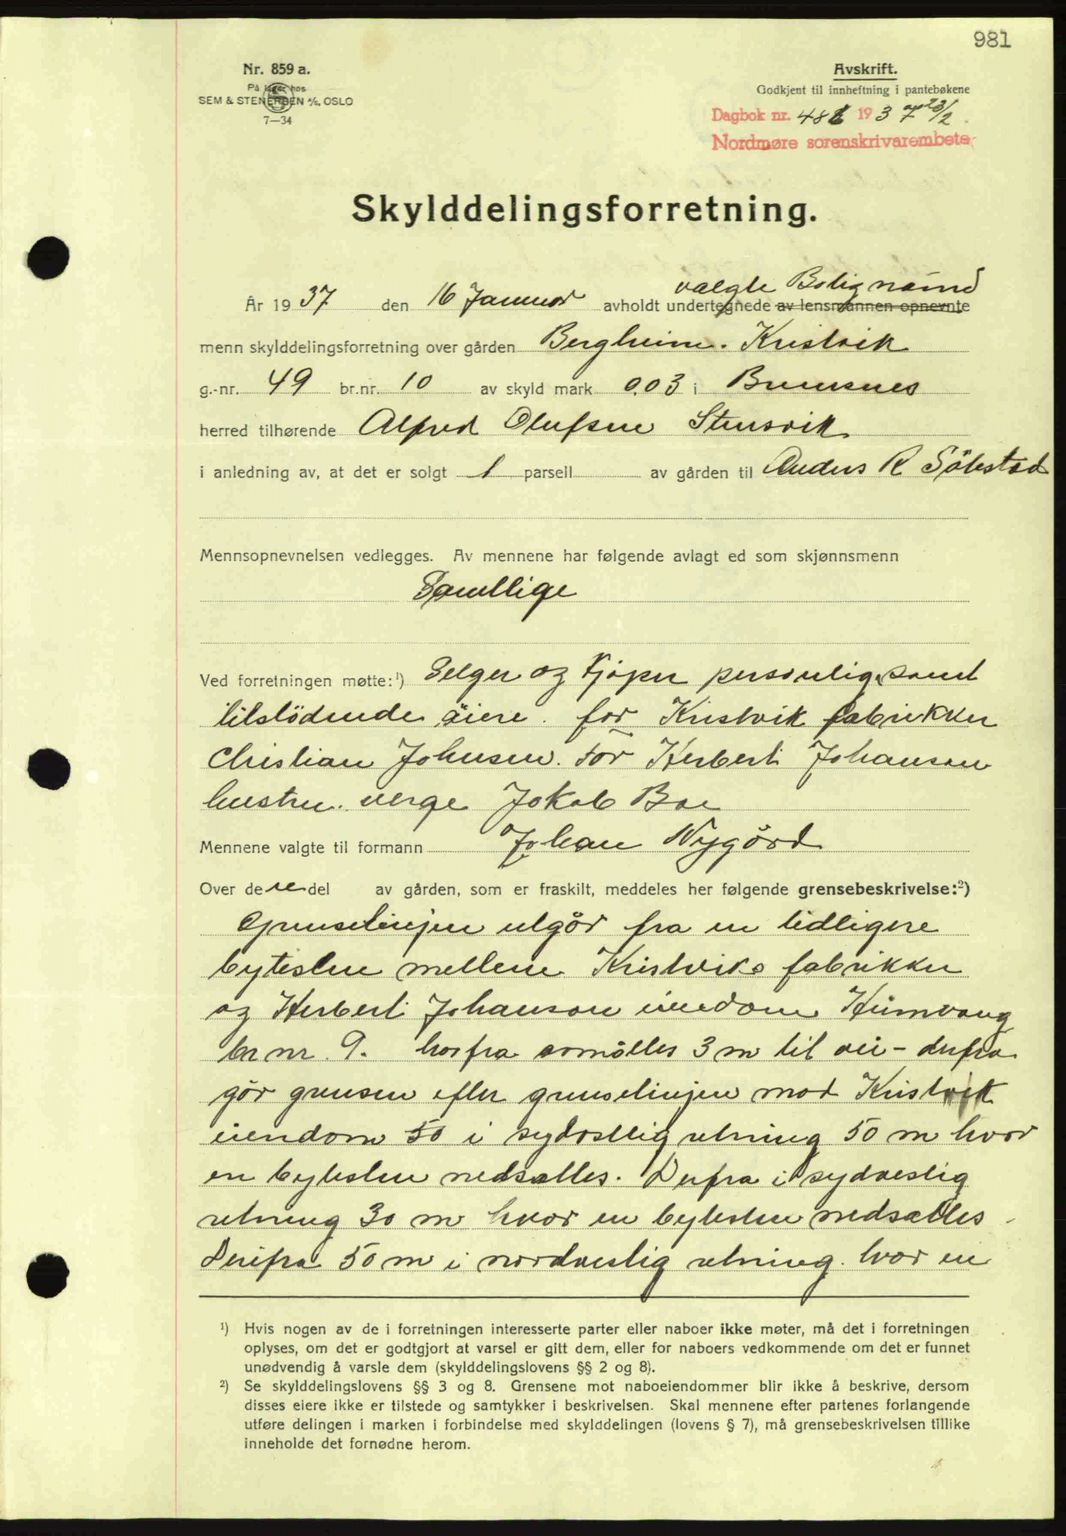 981
Nr. 859 a.
På lager hos
SEM & STENERSEN A/S, OSLO
7—34
Avskrift.
Godkjent til innheftning i pantebøkene
Dagbok nr. 1937 23/2
Nordmøre sorenskrivarembete
Skylddelingsforretning.
valgte Bolignemd
År 1937 den 16 Januar avholdt undertegnede av lensmannen opnevnte
menn skylddelingsforretning over gården Bergheim. Kristvik
g.-nr. 49 br.nr. 10 av skyld mark 0.03 i Bremsnes
herred tilhørende Alfred Olufsen Stensvik
i anledning av, at det er solgt 1 parsell av gården til Anders R Söbstad
Mennsopnevnelsen vedlegges. Av mennene har følgende avlagt ed som skjønnsmenn
Samtlige
Ved forretningen møtte:¹) Selger og kjøper personlig samt
tilstödende eiere. for Kristvik fabrikker
Christian Johnsen. For Herbert Johanson
hustru. verge Jakob Boe
Mennene valgte til formann Johan Nygörd
Over denne del av gården, som er fraskilt, meddeles her følgende grensebeskrivelse:²)
Grenselinjen utgör fra en tidligere
bytesten mellem Kristviks fabrikker
og Herbert Johanson eiendom Heimvang
br nr. 9. horfra avmöles 3 m til vei - derfra
gör grensen efter grenselinjen mod Kristvik
eiendom 50 i sydostlig retning 50 m hvor
en bytesten nedsættes. Derfra i sydvestlig
retning 30 m hvor en bytesten nedsættes
Derifra 50 m i nordvestlig retning. hvor en
¹) Hvis nogen av de i forretningen interesserte parter eller naboer ikke møter, må det i forretningen
oplyses, om det er godtgjort at varsel er gitt dem, eller for naboers vedkommende om det er funnet
unødvendig å varsle dem (skylddelingslovens §§ 2 og 8).
²) Se skylddelingslovens §§ 3 og 8. Grensene mot naboeiendommer blir ikke å beskrive, dersom
disses eiere ikke er tilstede og samtykker i beskrivelsen. Skal mennene efter partenes forlangende
utføre delingen i marken i forbindelse med skylddelingen (lovens § 7), må grensebeskrivelsen tillike
inneholde det fornødne herom.